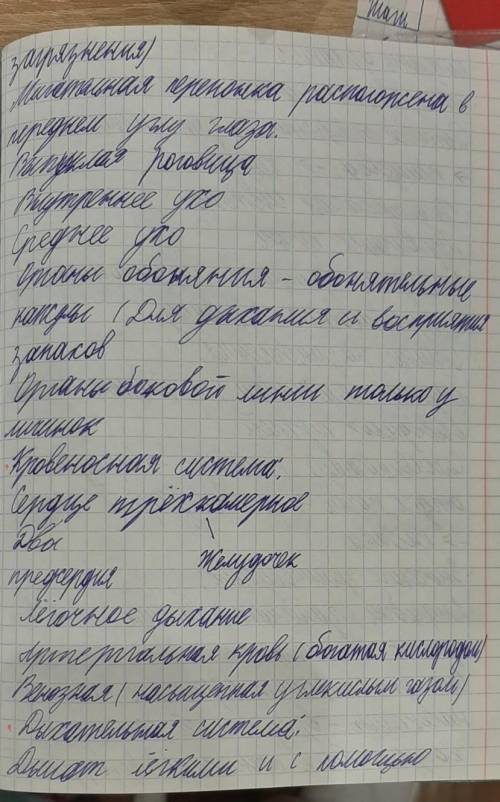 загрязнения)
Мигательная перепонка расположена в
переднем углу глаза.
Выпуклая роговица
Внутреннее ухо
Среднее ухо
Органы обоняния - обонятельные
(Для дыхания и восприятия
запахов
Органы боковой линии только у
личинок
Кровеносная система:
Сердце трёхкамерное
Два
Желудочек
предсердия
Лёгочное дыхание
Артериальная кровь (богатая кислородом)
Венозная (насыщенная углекислым газом)
Дыхательная система:
Дышат лёгкими и с помощью